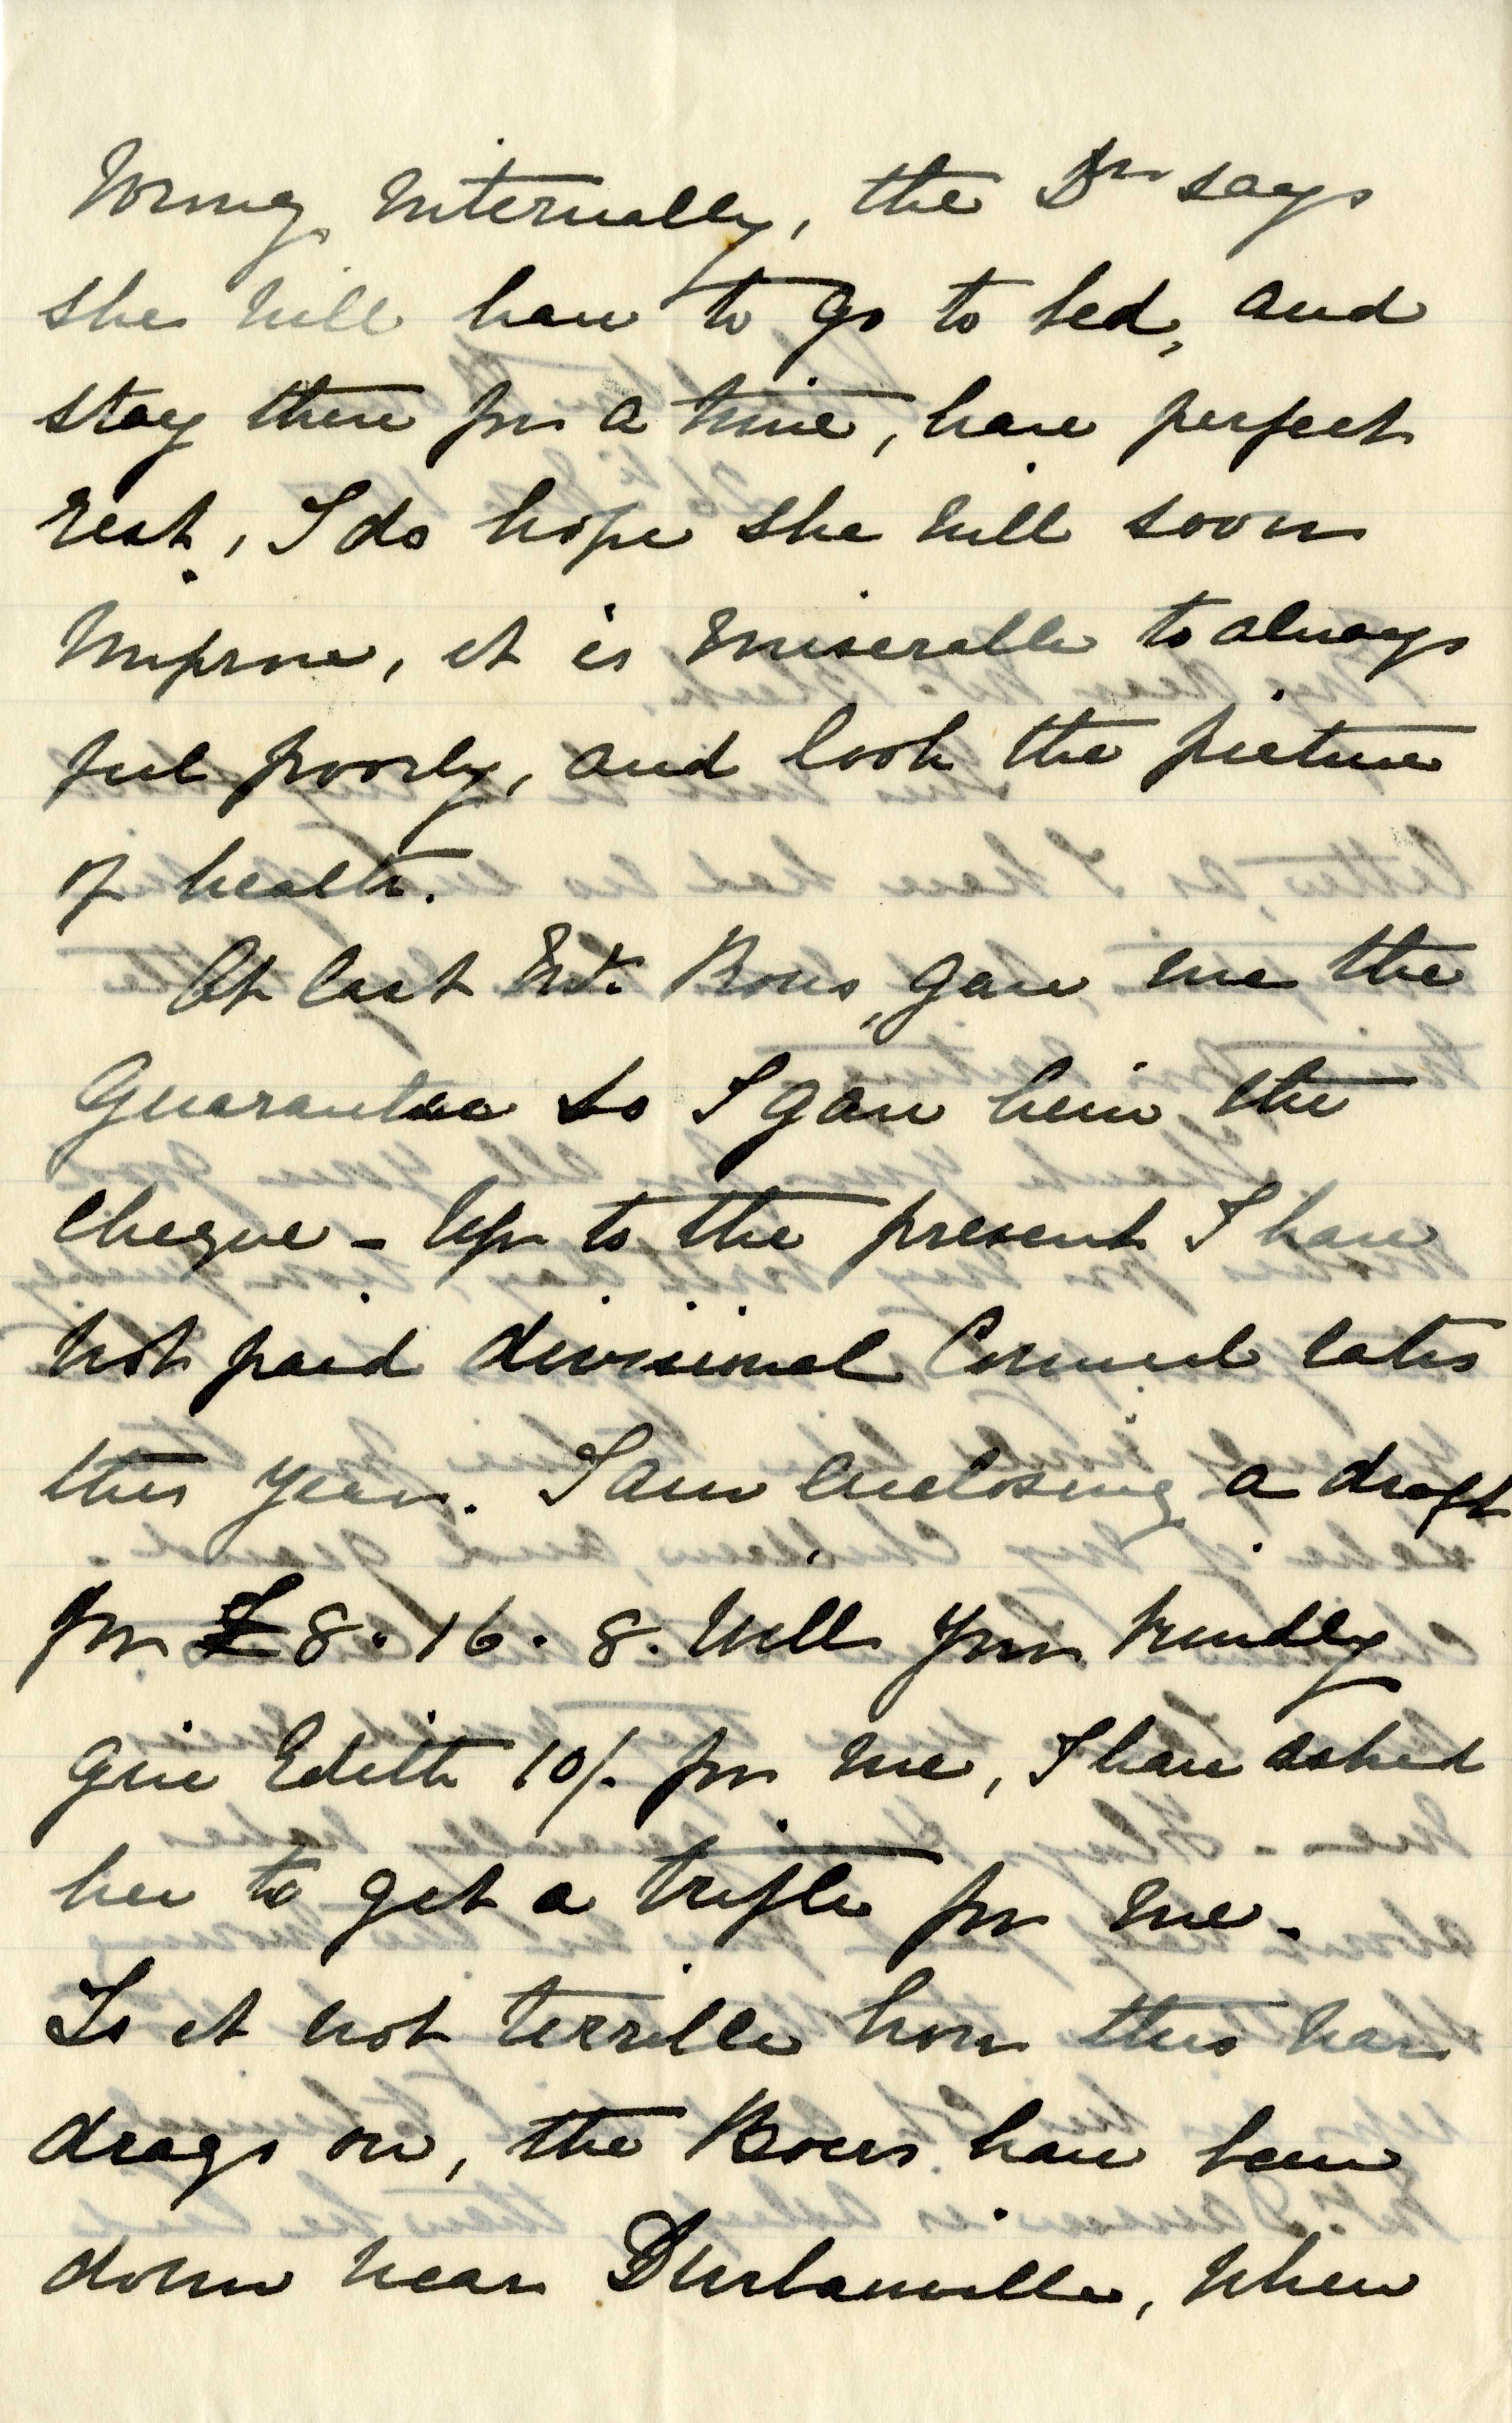 wrong internally, the Dr says
she will have to go to bed, and
stay there for a time, have perfect
rest, I do hope she will soon
improve, it is miserable to always
feel poorly, and look the picture
of health.
At last Mr. Rous, gave me the
Guarantee so I gave him the
cheque - Up to the present I have
not paid divisional Council rates
this year. I am enclosing a draft
for £8.16.8. Will you kindly
give Edith 10/- for me, I have asked
her to get a trifle for me -
Is it not terrible how this war
drags on, the Boers have been
down near Durbanville, when